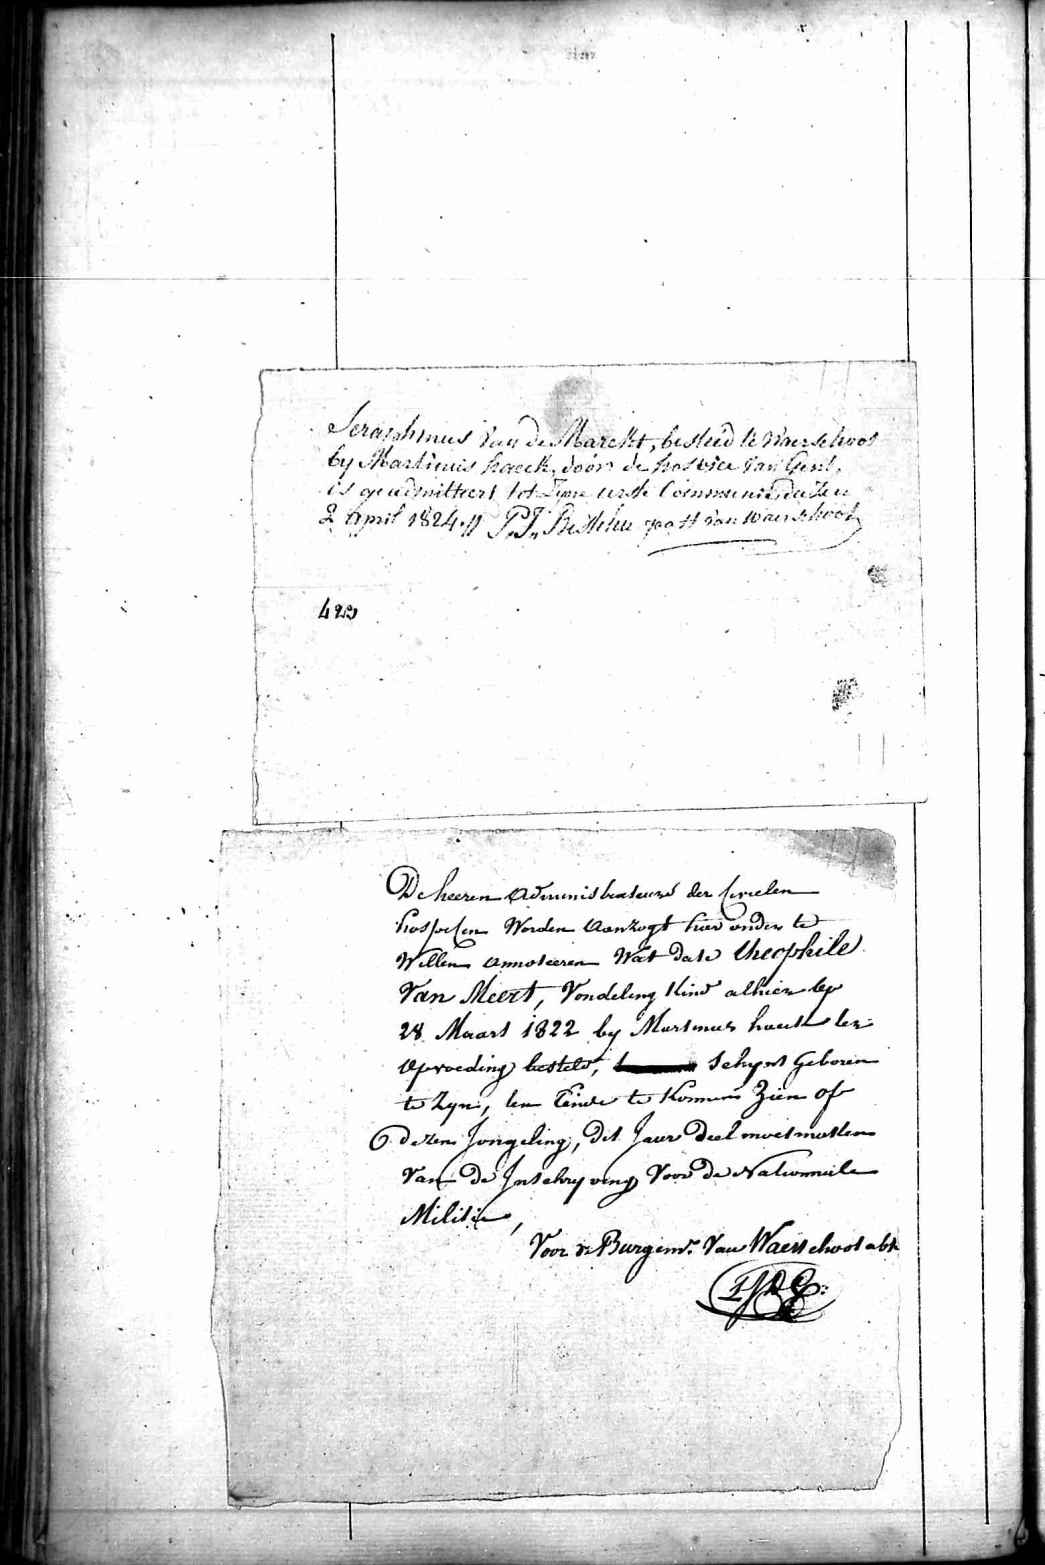 Seraphinus van de Marckt, besteed te Waerschoot
by Martinus haeck, door de hospice van Gent,
is geadmitteert tot zyne eerste Communie dezen
2 April 1824 P.J. past van Waerschoot
De heeren administrateurs der civielen
hospicen Worden aanzogt hier onder te
Willen annoteeren Wat date theophile
Van Meert, Vondeling Kind alhier op
28 Maart 1822 by Martinus ter
opvoeding besteld, schynt Geboren
te Zyn, ten Einde te Konnen Zien of
dezen Jongeling, dit Jaar deel moet maeken
Van de Inschryving Voor de Nationaele
Militie,
Voor de Burgemr. Van Waerschoot abt